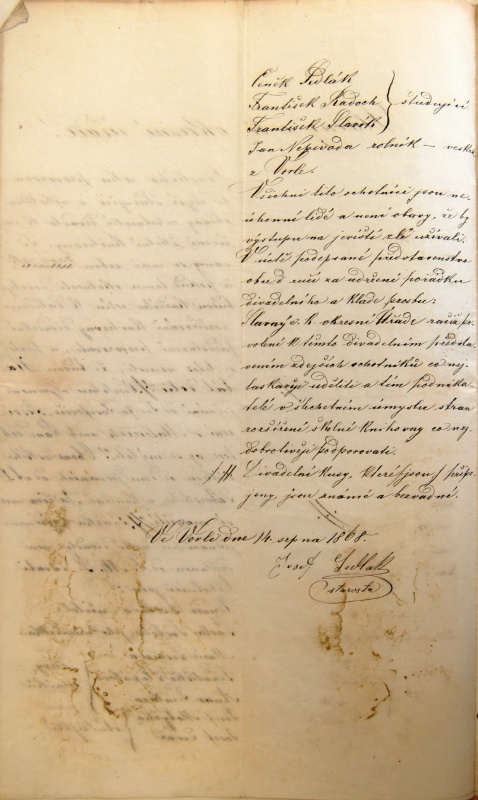 Čeněk Sedlák
František Kadoch
František Slavík } študující
Jan Nepivoda rolník – veskrz
z Vorle.
Všichni tito ochotníci jsou ne-
úhonní lidé a není obavy, že by
výstupu na jevišti zle užívali.
V úctě podepsané představenstvo
obce ručí za udržení pořádku
divadelního a klade prosbu:
Slavný c. k. okresní Úřade račiž po-
volení k temto divadelním předsta-
vením zdejších ochotníků co nej-
laskavěji uděliti a tím podnika-
telé v šlechetném úmyslu stran
rozšíření školné knihovny co nej-
dobrotivěji podporovati.
Divadelní kusy, které jsou připo-
jeny, jsou známé a bezvadné.
Ve Vorli dne 14. srpna 1868.
Josef Sedlak
starosta